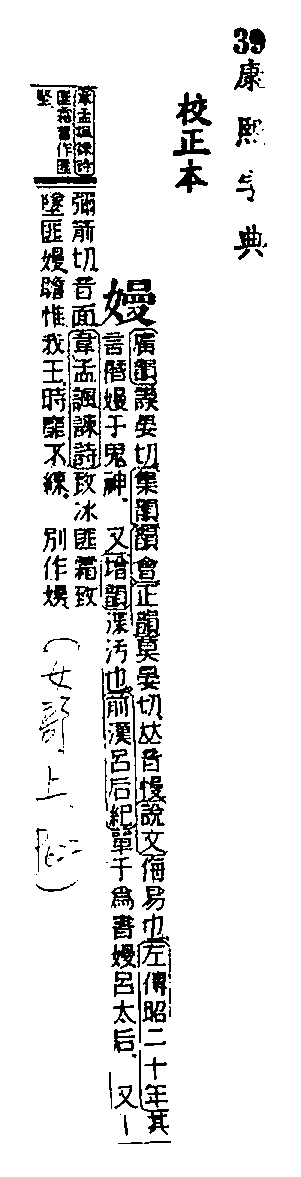 39
康熙字典
校正本
嫚
廣韻謨晏切集韻韻會正韻莫晏切𠀤音慢說文侮易也左傳昭二十年其
言僭嫚于鬼神 又增韻渫汚也前漢呂后紀單于爲書嫚呂太后 又
彌箭切音面韋孟諷諫詩致冰匪霜致
墜匪嫚瞻惟我王時靡不練 別作㛯
韋孟諷諫詩
匪霜舊作匪
堅
(女部上